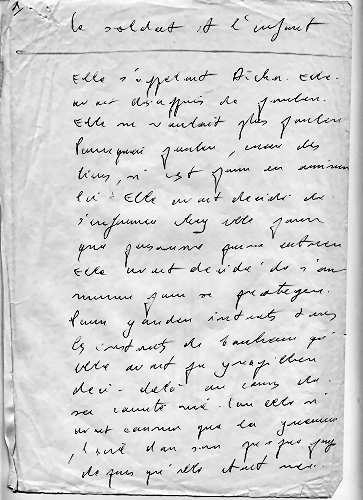 1
Le soldat et l'enfant
Elle s'appelait Aicha. Elle
avait désappris de parler.
Elle ne voulait plus parler
Pourquoi parler, avec des
liens, si c'est pour en
Elle avait décidé de
s'enfermer chez elle pour
que personne puisse entrer
Elle avait décidé de s'em
murer pour se protéger.
Pour garder instants dans
les instants de bonheur qu'
elle avait pu
deci-delà au cours de
sa courte vie. Car elle n'
avait connu que la guerre
dans son propre pays
depuis qu'elle était née.